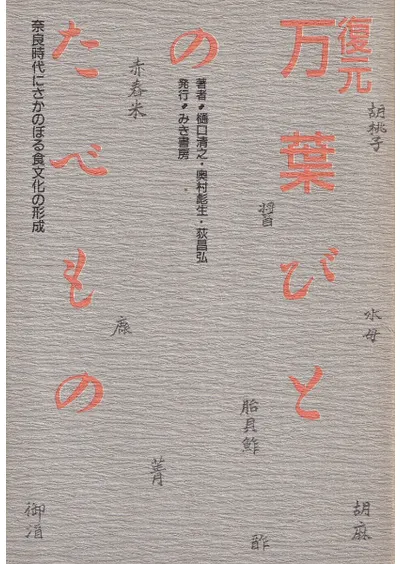 復元
万葉びと
の
たべもの
著者●樋口清之・奥村彪生・荻昌弘
発行●みき書房
奈良時代にさかのぼる食文化の形成
胡桃子
赤舂米
醤
水母
鹿
胎貝鮓
菁
胡麻
酢